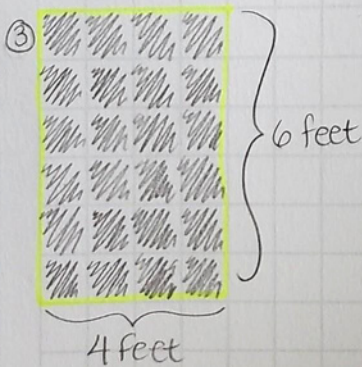 ③
6 feet
4 feet